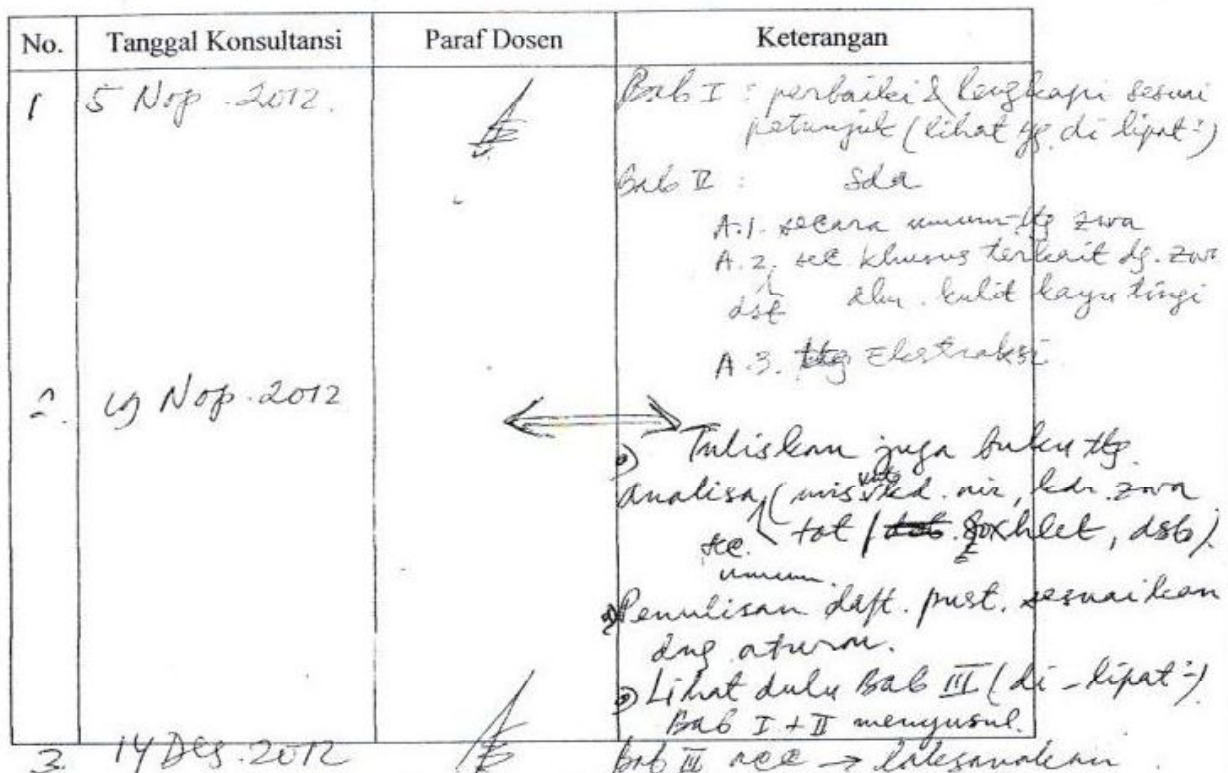 No. Tanggal Konsultansi Paraf Dosen Keterangan
1 5 Nop. 2012. Bab I : perbaiki & lengkapi sesuai
petunjuk (lihat yg. di lipat²)
Bab II : Sda
A.1. secara umum ttg zwa
A.2. sec khusus terkait dg. zwa
dst dlm. kulit kayu tingi
A.3. ttg Ekstraksi
2. 19 Nop. 2012
Tuliskan juga buku ttg.
analisa (mis utk kd. air, kdr. zwa
tot / soxhlet, dsb).
sec. umum.
Penulisan daft. pust. sesuaikan
dng aturan.
Lihat dulu Bab III (di-lipat²)
Bab I + II menyusul.
3. 14 Des. 2012 Bab III acc → laksanakan.